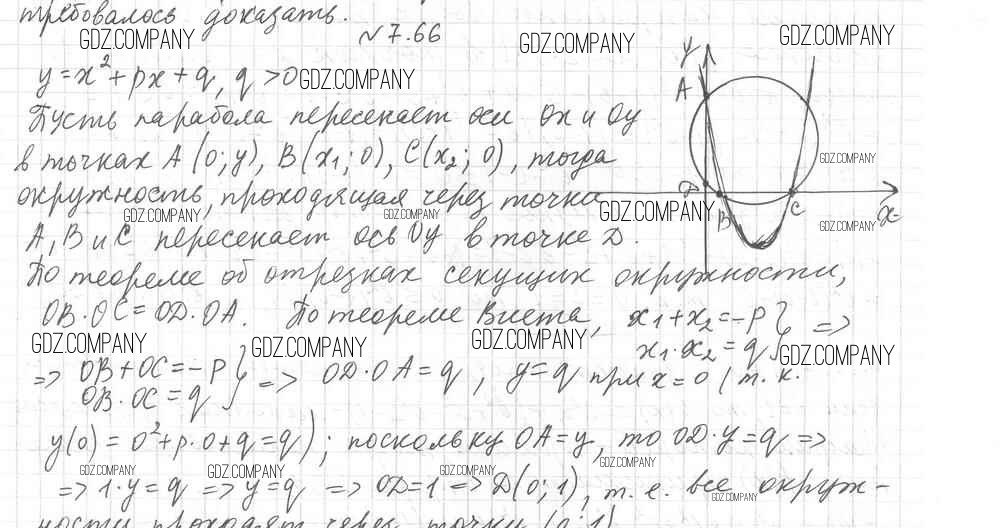 требовалось доказать.
GDZ.COMPANY
№7.66
GDZ.COMPANY
GDZ.COMPANY
y = x² + px + q, q > 0
GDZ.COMPANY
Пусть парабола пересекает оси Ox и Oy
в точках A (0; y), B (x₁; 0), C (x₂; 0), тогда
окружность, проходящая через точки
GDZ.COMPANY
GDZ.COMPANY
GDZ.COMPANY
A, B и C пересекает ось Oy в точке D.
По теореме об отрезках секущих окружности,
OB·OC = OD·OA. По теореме Виета, x₁ + x₂ = -p } =>
x₁·x₂ = q
GDZ.COMPANY
GDZ.COMPANY
GDZ.COMPANY
GDZ.COMPANY
=> OB + OC = -p } => OD·OA = q, y = q при x = 0 (т. к.
OB·OC = q
y(0) = 0² + p·0 + q = q); поскольку OA = y, то OD·y = q =>
GDZ.COMPANY
GDZ.COMPANY
GDZ.COMPANY
GDZ.COMPANY
=> 1·y = q => y = q => OD = 1 => D(0; 1), т. е. все окруж-
GDZ.COMPANY
ности проходят через точку (0; 1)
y
A
GDZ.COMPANY
D
B
C
x
GDZ.COMPANY